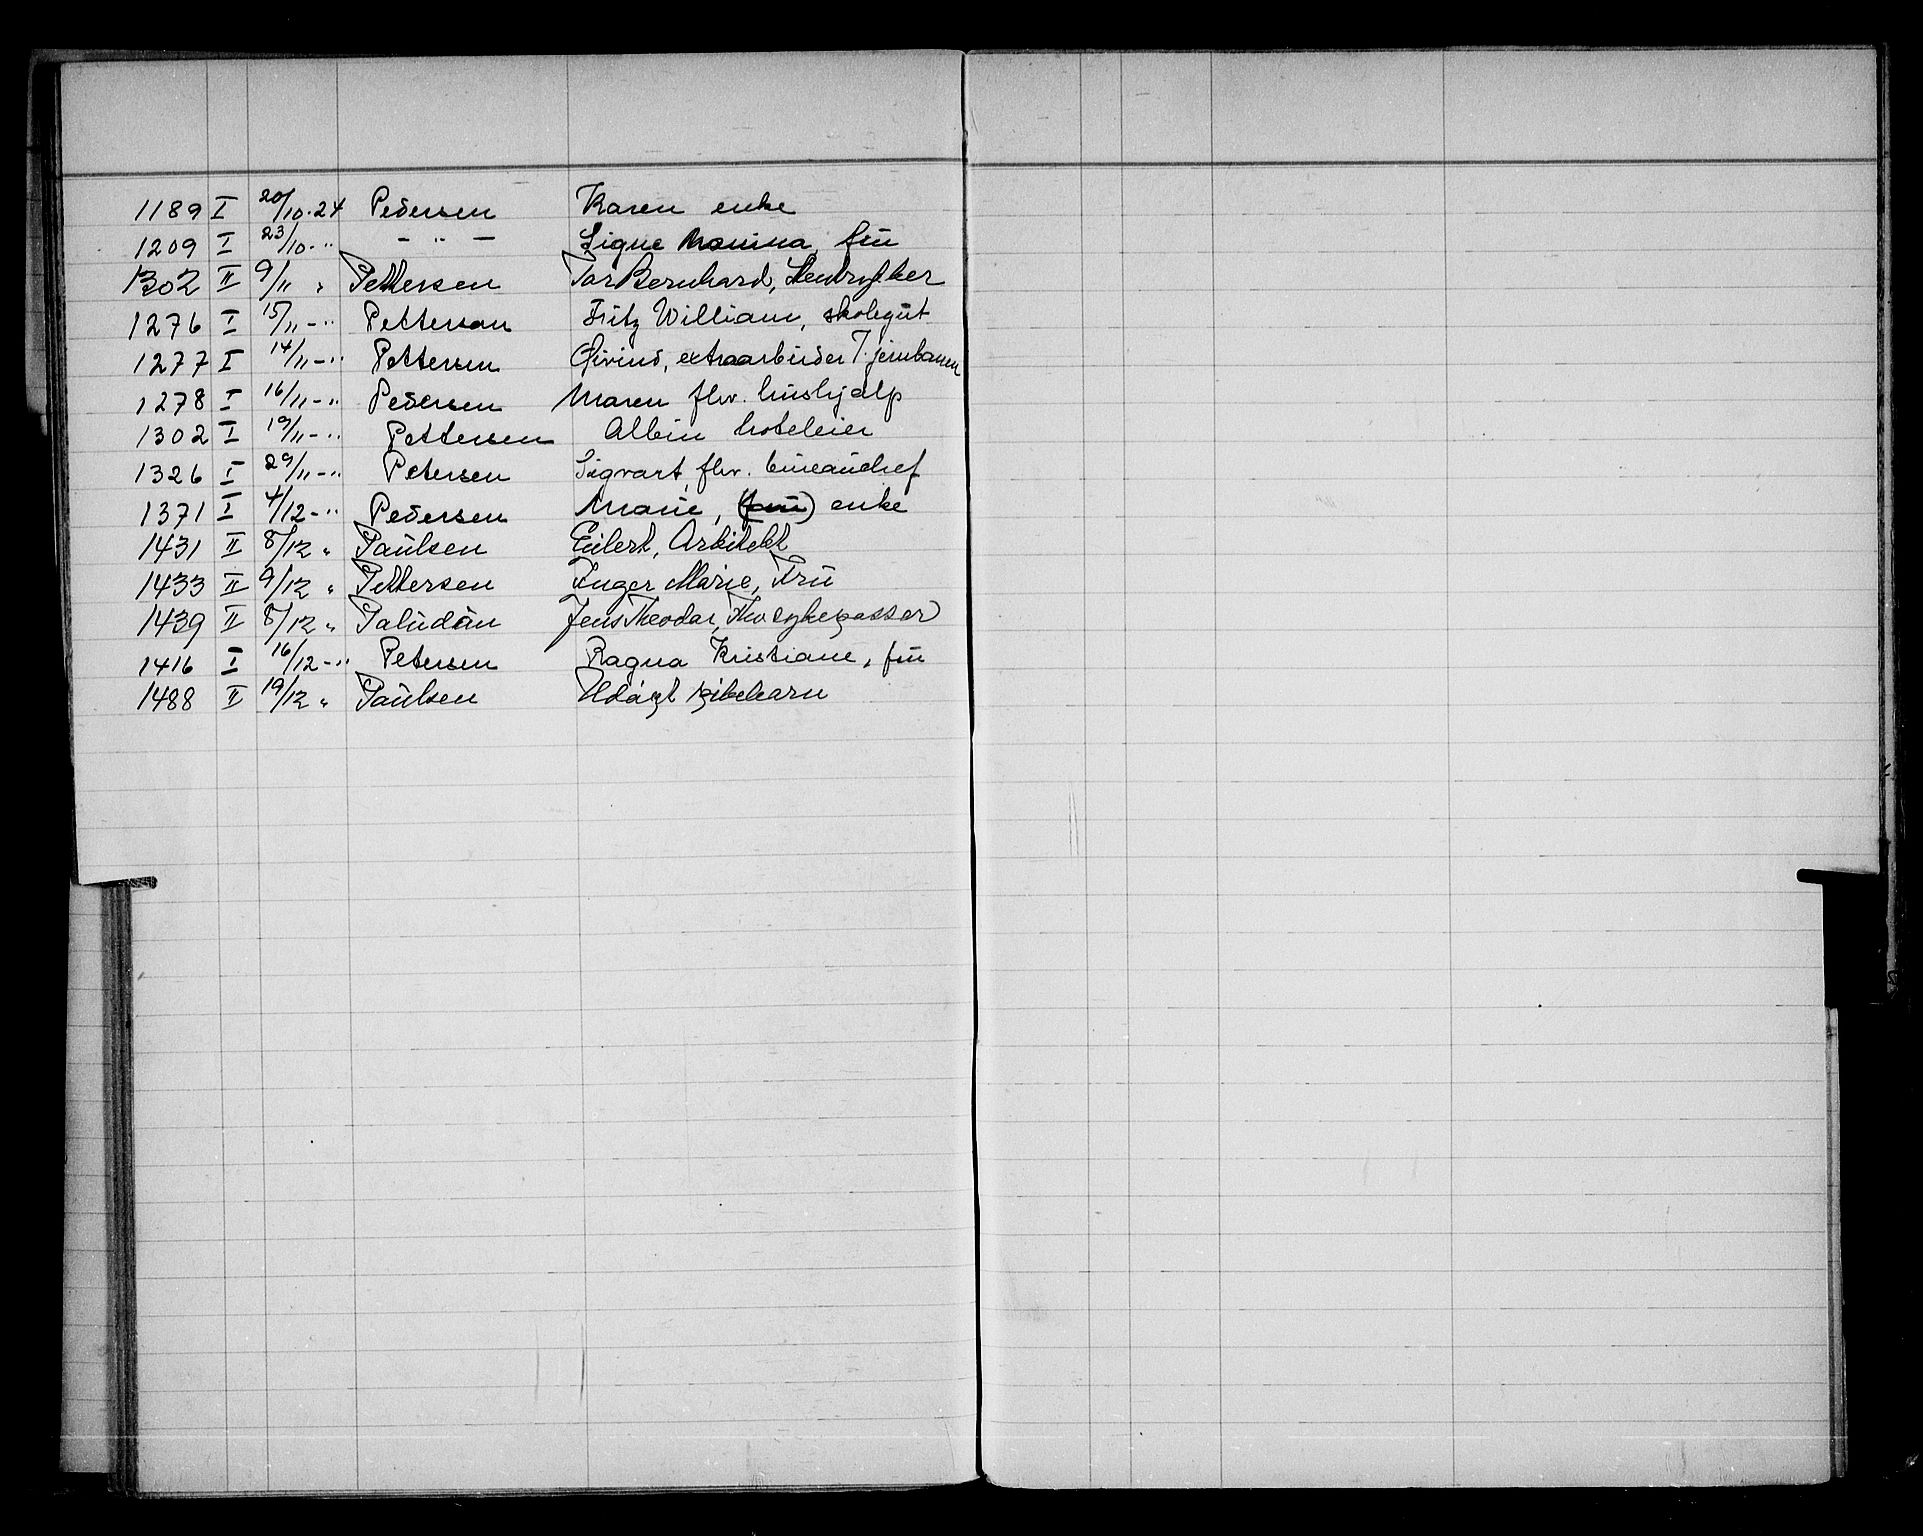 1189 I 20/10.24 Pedersen Karen enke
1209 I 23/10-" - " - Signe Monina, frü
1302 II 9/11 " Pettersen Tor Bernhard, Stenbryther
1276 I 15/11-" Petterson Fritz William, skolegüt
1277 I 14/11-" Pettersen Øivind, extraarbeider v. jernbanen
1278 I 16/11-" Pedersen Maren fhv. hüshjælp
1302 I 19/11-" Pettersen Albin hoteleier
1326 I 29/11-" Petersen Sigvart, fhv. büreaüchef
1371 I 4/12-" Pedersen Marie, (früe) enke
1431 II 8/12 " Paülsen Eilert, Arkitekt
1433 II 9/12 " Pettersen Inger Marie, Frü
1439 II 8/12 " Palüdan Jens Theodor,
1416 I 16/12-" Petersen Ragna Kristiane, frü
1488 II 19/12 " Paülsen Udøpt pikebarn